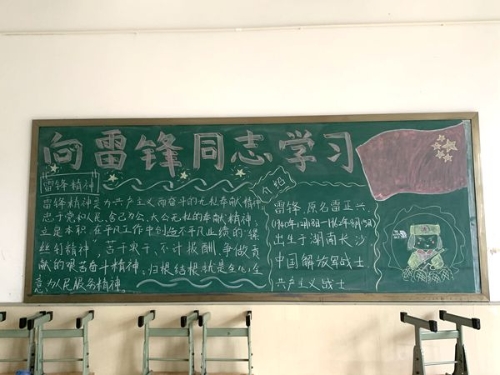 向雷锋同志学习
雷锋精神
雷锋精神是为共产主义而奋斗的无私奉献精神,
忠于党和人民、舍己为公、大公无私的奉献精神;
立足本职、在平凡工作中创造不平凡业绩的"螺
丝钉精神";苦干实干、不计报酬、争做贡
献的艰苦奋斗精神,归根结底就是全心全
意为人民服务精神.
介绍
雷锋,原名雷正兴
出生于湖南长沙
中国解放军战士
共产主义战士